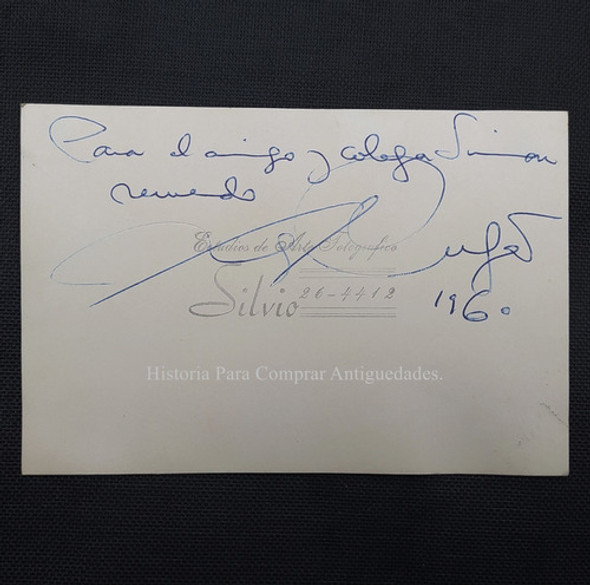 Para el amigo y colega Simon
recuerdo
Estudios de Arte Fotografico
Silvio 26-4412
1960
Historia Para Comprar Antiguedades.